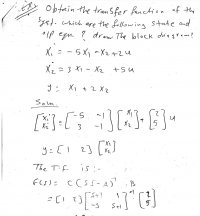 Obtain the transfer function of the
syst. which are the following state and
o/p eqn ? draw The block diagram!
Ẋ₁ = -5X₁ - X₂ + 2u
Ẋ₂ = 3X₁ - X₂ + 5u
y = X₁ + 2X₂
Soln
[Ẋ₁ Ẋ₂] = [-5 -1 3 -1] [X₁ X₂] + [2 5] u
y = [1 2] [X₁ X₂]
The T.F. is :-
= [1 2] [S+5 1 -3 S+1]⁻¹ [2 5]